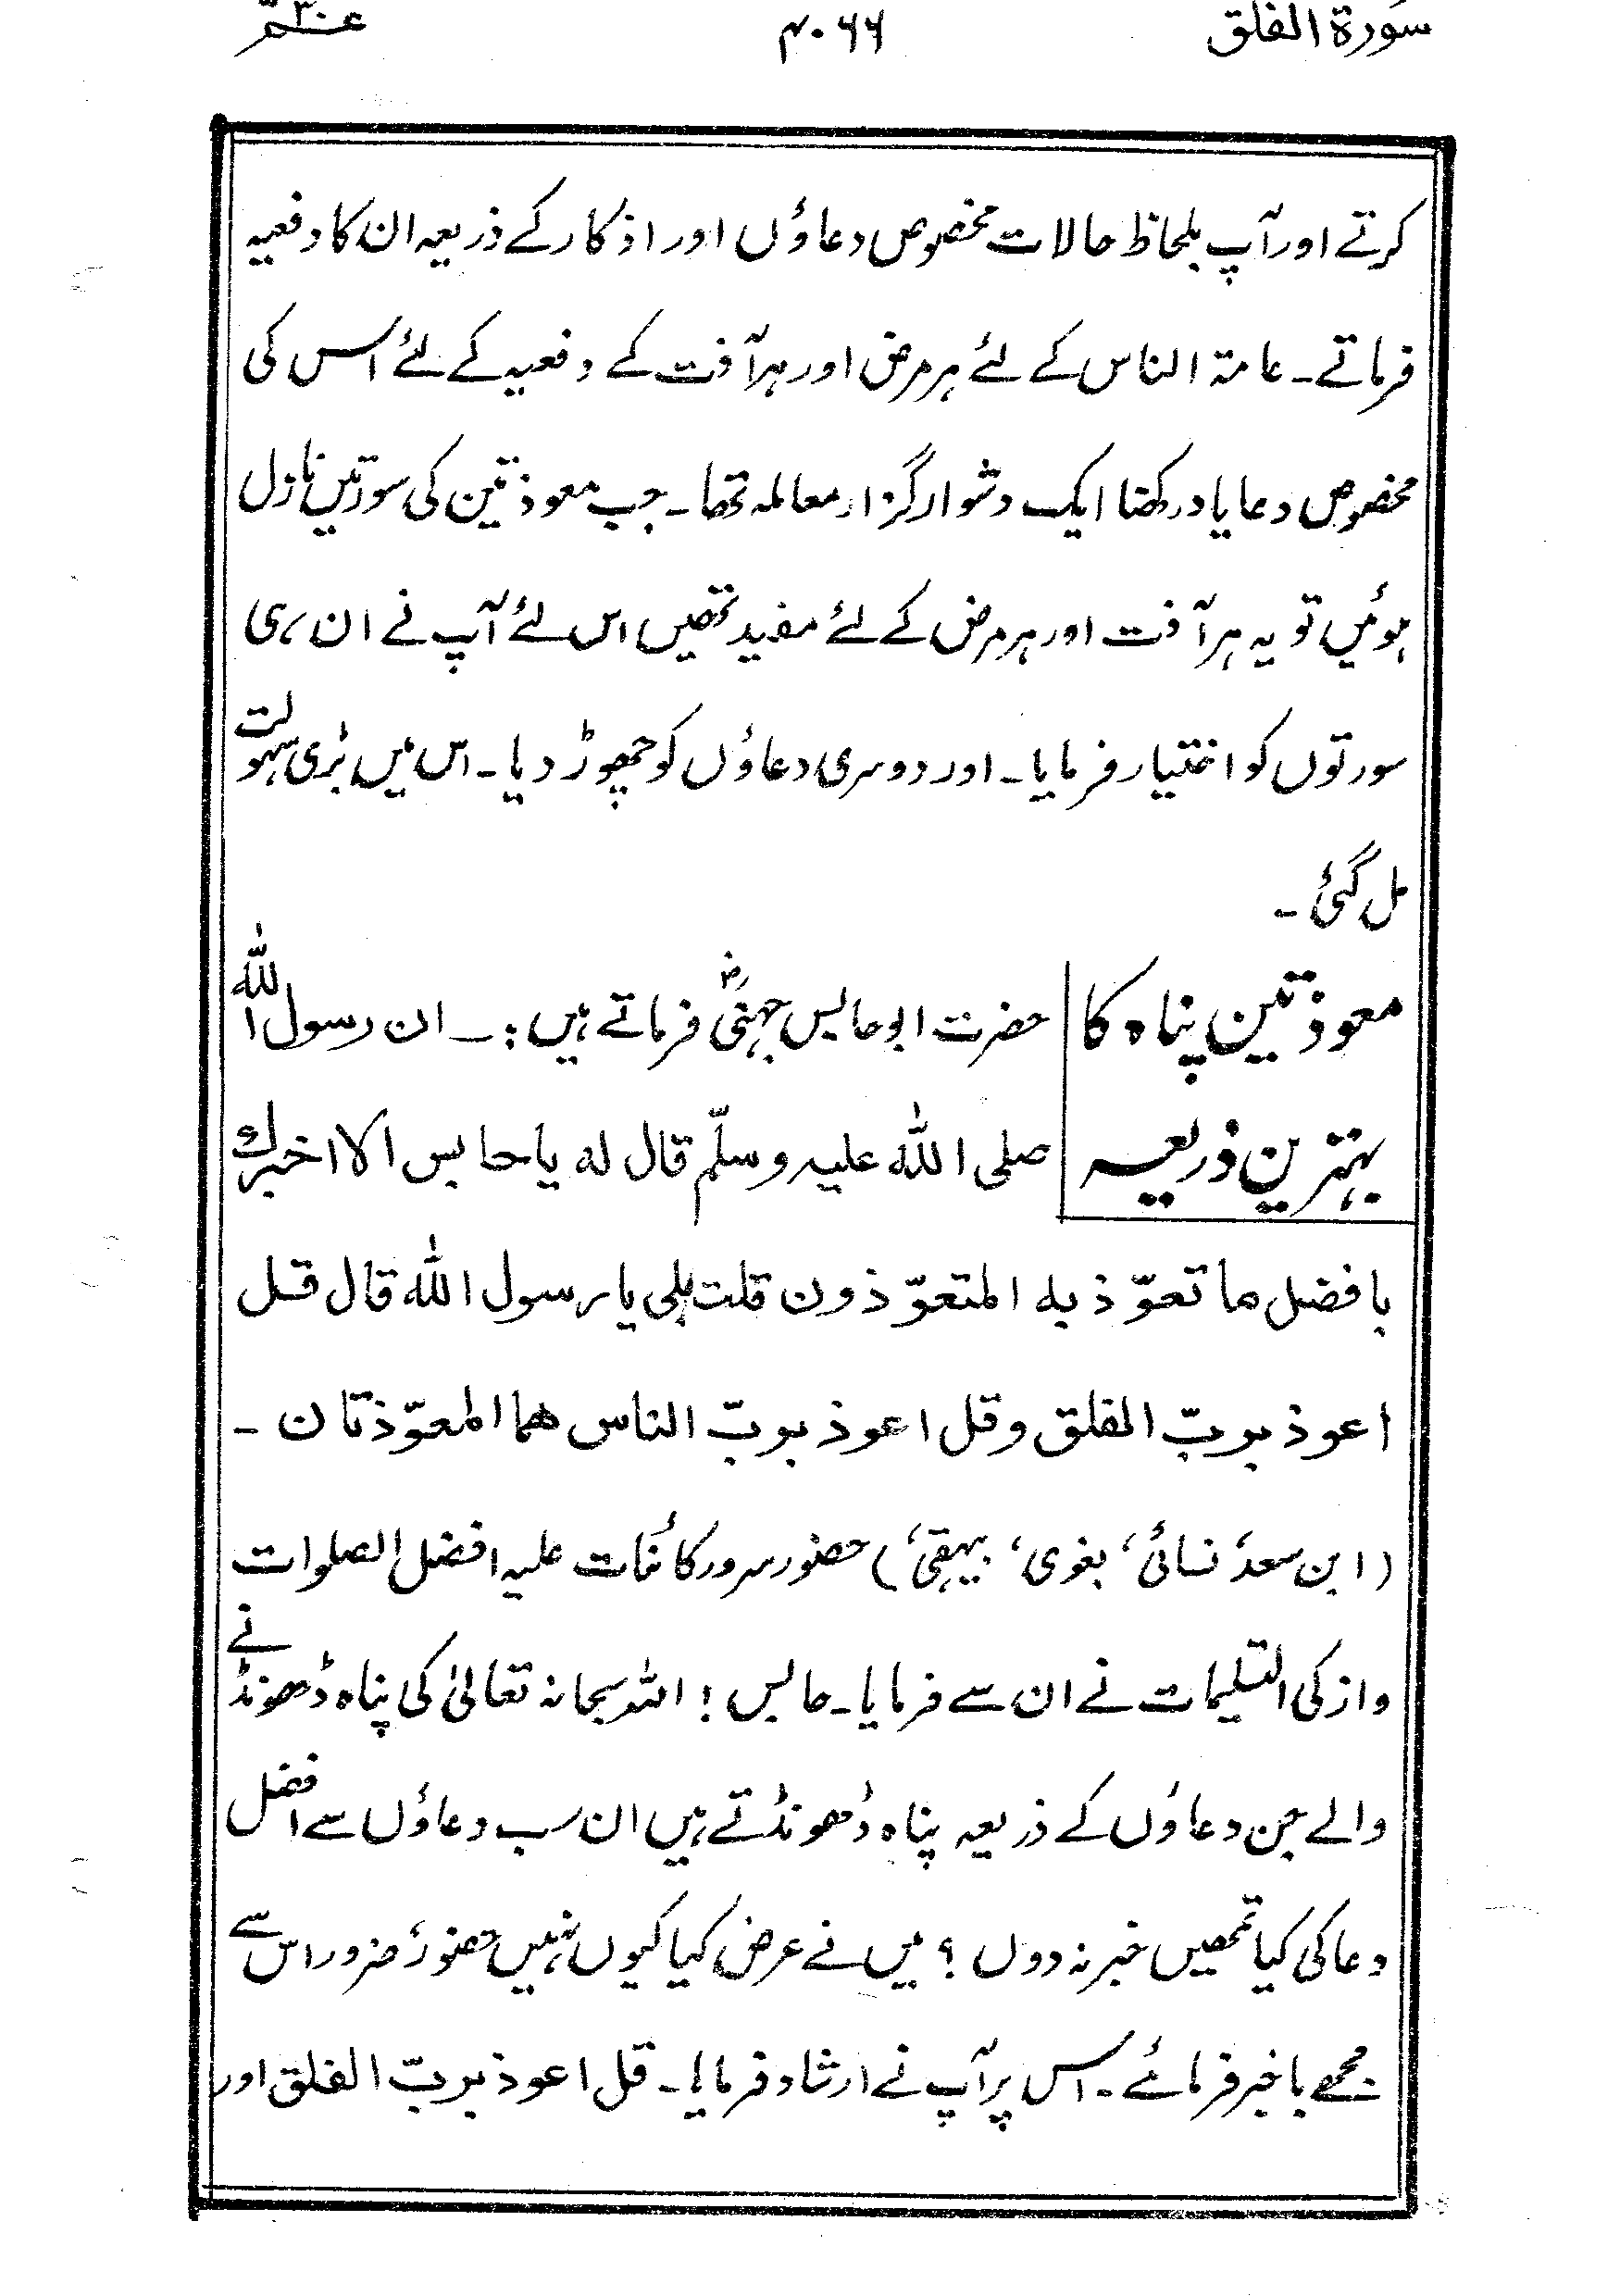 سورۃ الفلق ۴۰۶۶ عم۳۰
کرتے اور آپ بلحاظ حالات مخصوص دعاؤں اور اذکار کے ذریعہ ان کا دفعیہ
فرماتے۔ عامۃ الناس کے لئے ہر مرض اور ہر آفت کے دفعیہ کے لئے اس کی
مخصوص دعا یاد رکھنا ایک دشوار گزار معاملہ تھا۔ جب معوذتین کی سورتیں نازل
ہوئیں تو یہ ہر آفت اور ہر مرض کے لئے مفید تھیں اس لئے آپ نے ان ہی
سورتوں کو اختیار فرمایا۔ اور دوسری دعاؤں کو چھوڑ دیا۔ اس میں بڑی سہولت
مل گئی۔
معوذتین پناہ کا حضرت ابو حابس جہنیؓ فرماتے ہیں :۔ ان رسول اللہ
بہترین ذریعہ صلی اللہ علیہ وسلّم قال لہ یا حابس الا اخبرك
بافضل ما تعوّذ بہ المتعوّذون قلت بلی یا رسول اللہ قال قل
اعوذ بربّ الفلق وقل اعوذ بربّ الناس ھما المعوّذتان ۔
(ابن سعد، نسائی، بغوی، بیہقی،) حضور سرور کائنات علیہ افضل الصلوات
وازکی التسلیمات نے ان سے فرمایا۔ حابس! اللہ سبحانہ تعالیٰ کی پناہ ڈھونڈنے
والے جن دعاؤں کے ذریعہ پناہ ڈھونڈتے ہیں ان سب دعاؤں سے افضل
دعا کی کیا تمھیں خبر نہ دوں؟ میں نے عرض کیا کیوں نہیں حضور، ضرور اس سے
مجھے باخبر فرمائے۔ اس پر آپ نے ارشاد فرمایا۔ قل اعوذ بربّ الفلق اور